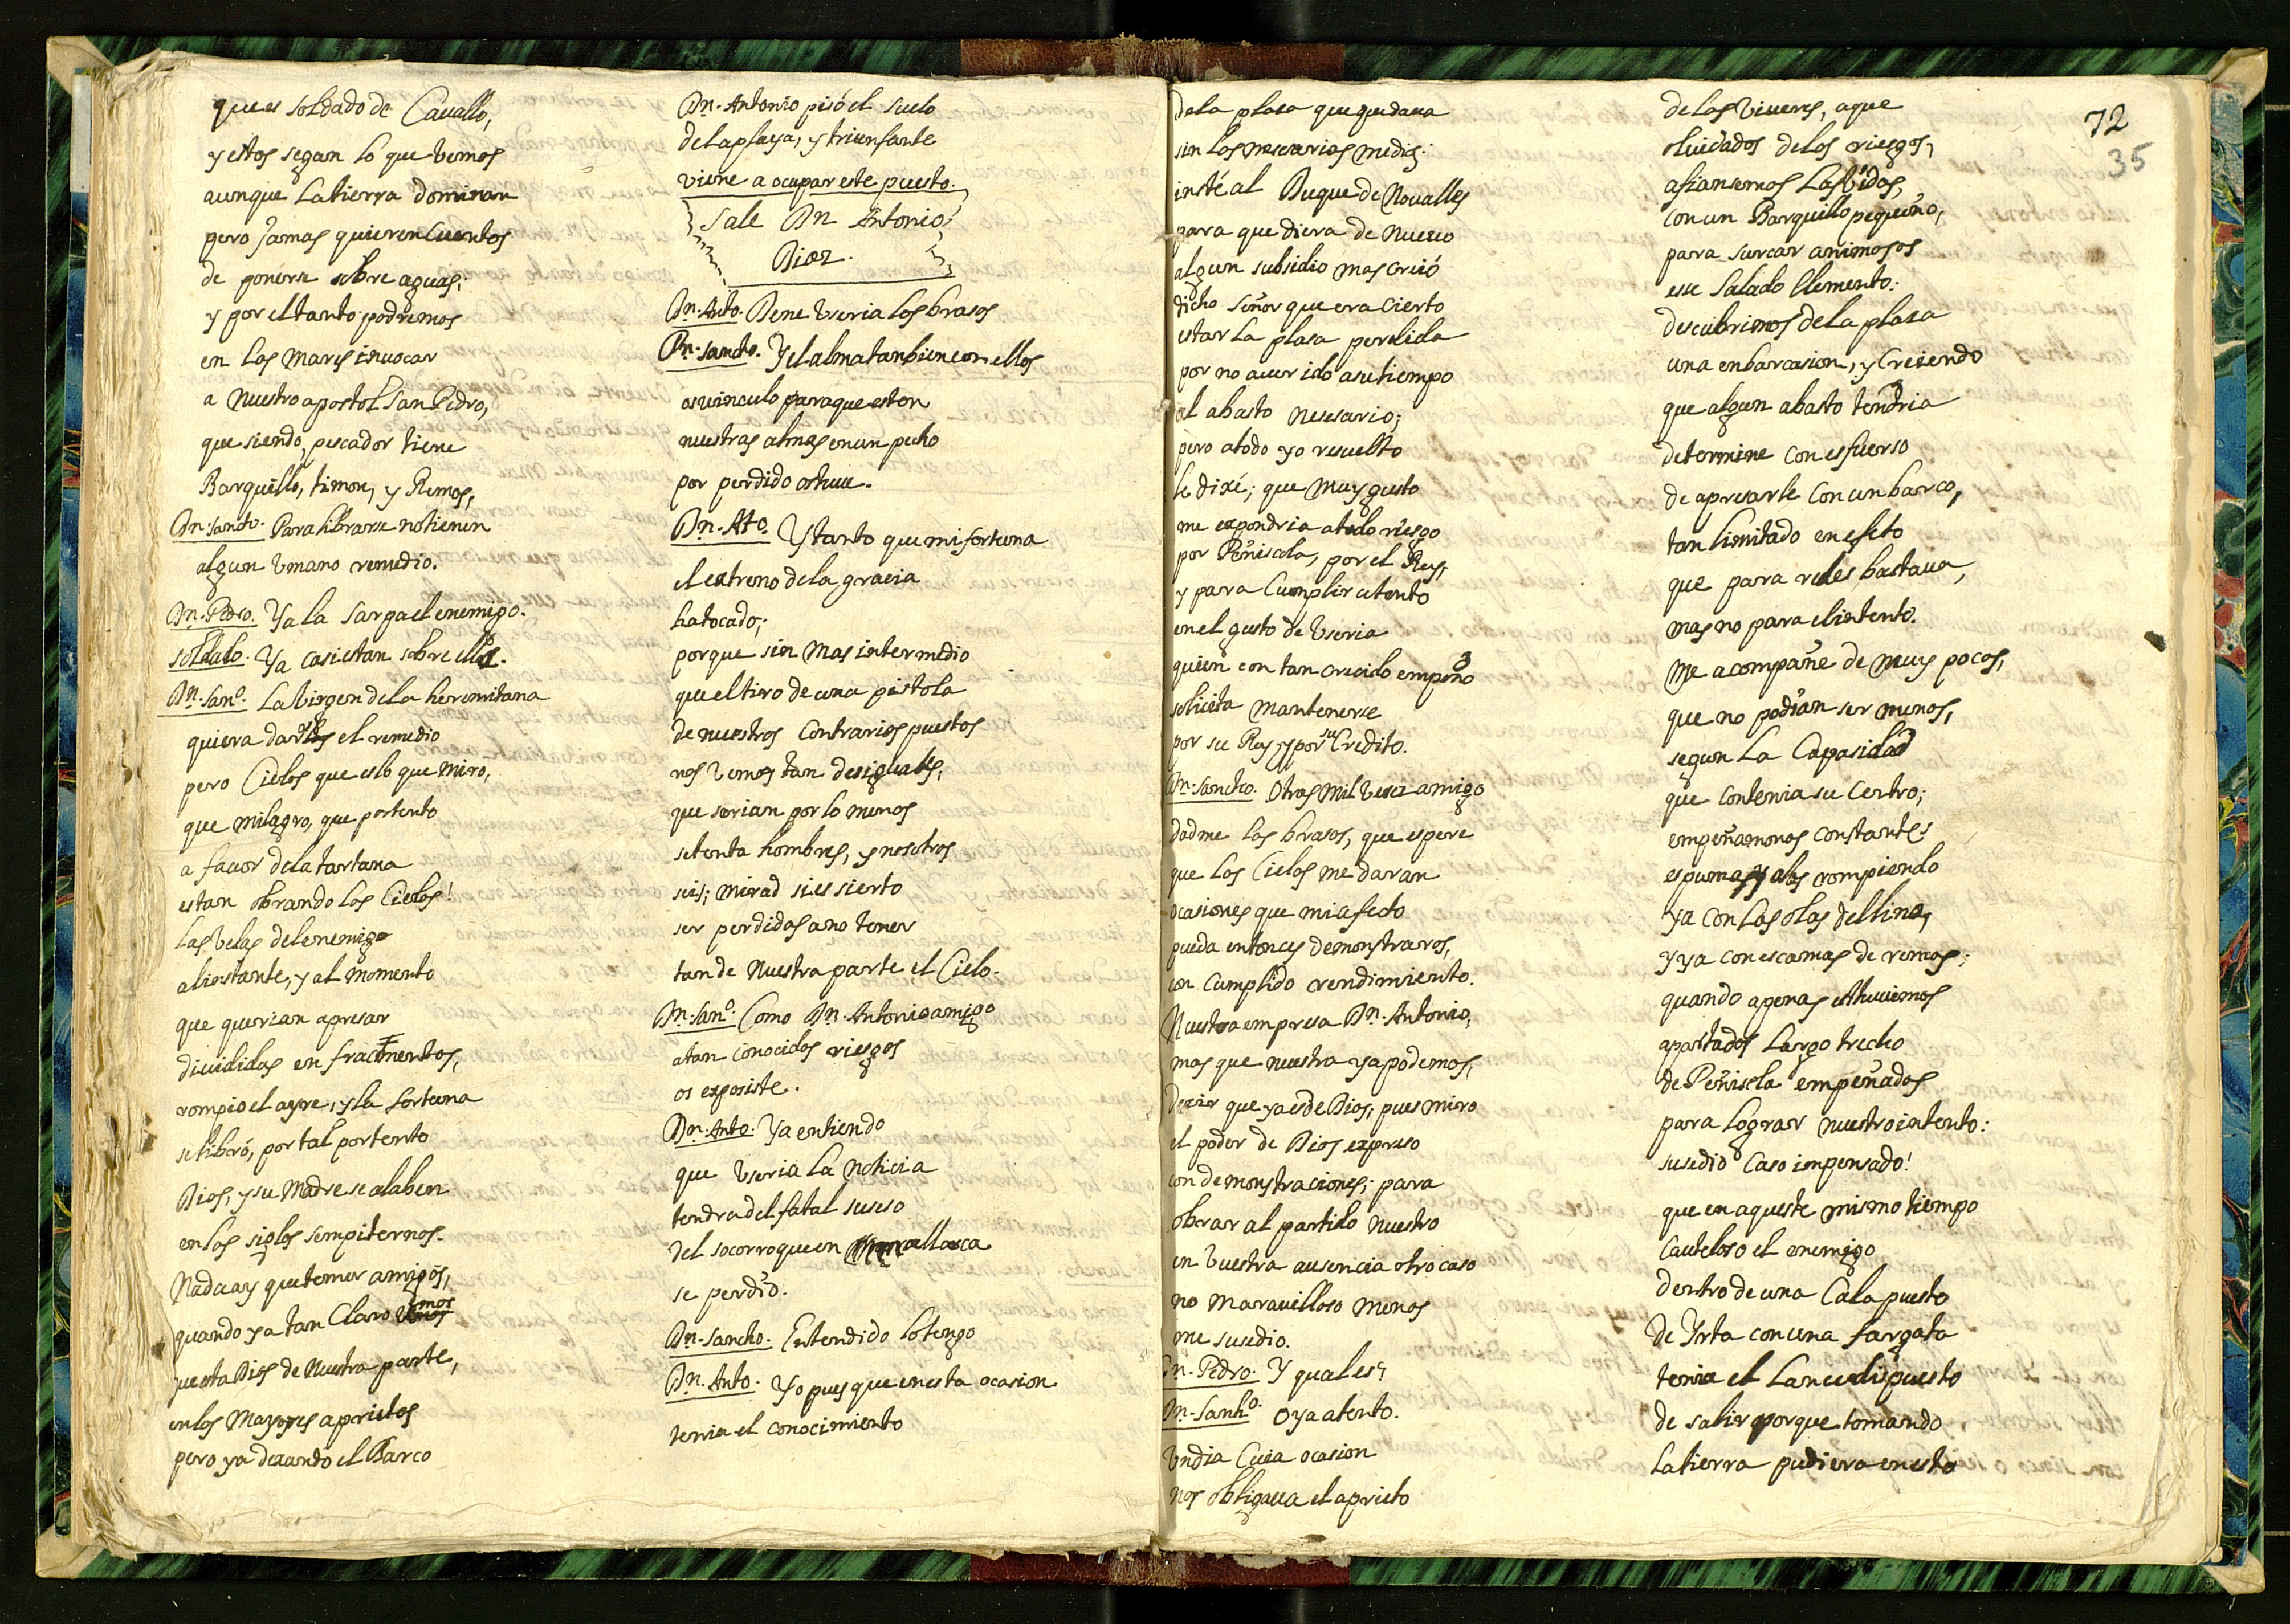 que es soldado de Cauallo,
y estos segun lo que vemos
aunque la tierra dominan
pero Jamas quieren Cuentos
de ponerse sobre aguas;
y por el tanto podremos
en los mares inuocar
a Nuestro apostol San Pedro,
que siendo, pescador tiene
Barquillo, timon, y Remos,
Dn. Sancho. Para librarse no tienen
algun Vmano remedio.
Dn. Pedro. Ya la sarpa el enemigo.
soldado. Ya casi estan sobre ellos.
Dn. Sano. La Virgen dela hermitana
quiera darles el remedio
pero Cielos que es lo que miro,
que milagro, que portento
a fauor dela tartana
estan obrando los Cielos!
las Velas del enemigo
al instante, y al momento
que querian apresar
diuididas en fracmentos,
rompio el ayre, y la fortuna
se libró, por tal portento
Dios, y su Madre se alaben
en los siglos sempiternos.
Nada ay que temer amigos,
quando ya tan Claro vemos
questa Dios de Nuestra parte,
en los Mayores aprietos
pero ya dexando el Barco
Dn. Antonio pisó el suelo
dela playa, y triunfante
viene a ocupar este puesto.
Sale Dn Antonio
Dioz.
Dn. Anto. Deme Vseria los brasos
Dn. Sancho. Y el alma tanbien con ellos
os vinculo para que esten
nuestras almas en un pecho
por perdido os tuue.
Dn. Ato. Y tanto que mi fortuna
el extremo dela gracia
ha tocado;
porque sin mas intermedio
que el tiro de una pistola
de nuestros Contrarios puestos
nos vemos tan desiguales,
que serian por lo menos
setenta hombres, y nosotros
seis; mirad si es sierto
ser perdidos a no tener
tan de Nuestra parte el Cielo.
Dn. Sano. Como Dn. Antonio amigo
a tan conocidos riesgos
os exposiste.
Dn. Anto. Ya entiendo
que Vseria la noticia
tendra del fatal suseso
del socorro que en Mallorca
se perdió.
Dn. Sancho. Entendido lo tengo
Dn. Anto. Yo pues que en esta ocasion
tenia el conocimiento
dela plasa que quedaua
sin los nesesarios medios:
insté al Duque de Noualles
para que diera de nueuo
algun subsidio mas creió
dicho Señor que era Cierto
estar la plasa perdida
por no auer ido a su tiempo
al abasto nesesario;
pero a todo yo resuelto
le dixé; que muy gusto
me expondria a todo riesgo
por Peñiscola, por el Rey,
y para Cumplir atento
en el gusto de Vseria
quien con tan crecido empeño
solicita mantenerse
por su Rey, y por su Credito.
Dn. Sancho. Otras mil veses amigo
dadme los brasos, que espere
que los Cielos me daran
ocasiones que mi afecto
pueda entonces demonstraros,
con Cumplido rendimiento.
Nuestra empresa Dn. Antonio,
mas que nuestra ya podemos,
Decir que ya es de Dios, pues miro
el poder de Dios expreso
con demonstraciones; para
obrar al partido nuestro
en vuestra ausencia otro caso
no marauilloso menos
me susedio.
Dn. Pedro. Y qual es?
Dn. Sanho. Oya atento.
Vn dia Cuia ocasion
nos obligaua el aprieto
72
35
de los Viueres, a que
oluidados delos riesgos,
afiansemos las Vidas,
con un Barquillo pequeño,
para surcar animosos
esse Salado Elemento:
descubrimos dela plasa
una enbarcasion, y Creiendo
que algun abasto tendria
determine con esfuerso
de apresarle Con un barco,
tan limitado en efeto
que para redes bastaua,
mas no para el intento.
Me acompañe de muy pocos,
que no podian ser menos,
segun la Capasidad
que Contenia su Centro;
empeñamonos constantes
espumas, y alas rompiendo
ya con las olas del lino,
y ya con escamas de remos;
quando apenas esthuuiemos
apartados largo trecho
de Peñiscla empeñados
para lograr nuestro intento:
susedio Caso inpensado!
que en aqueste mismo tiempo
Cauteloso el enemigo
dentro de una Cala puesto
de Yrta con una fargata
tenia el Lance dispuesto
de salir porque tomando
la tierra pudiera en esto